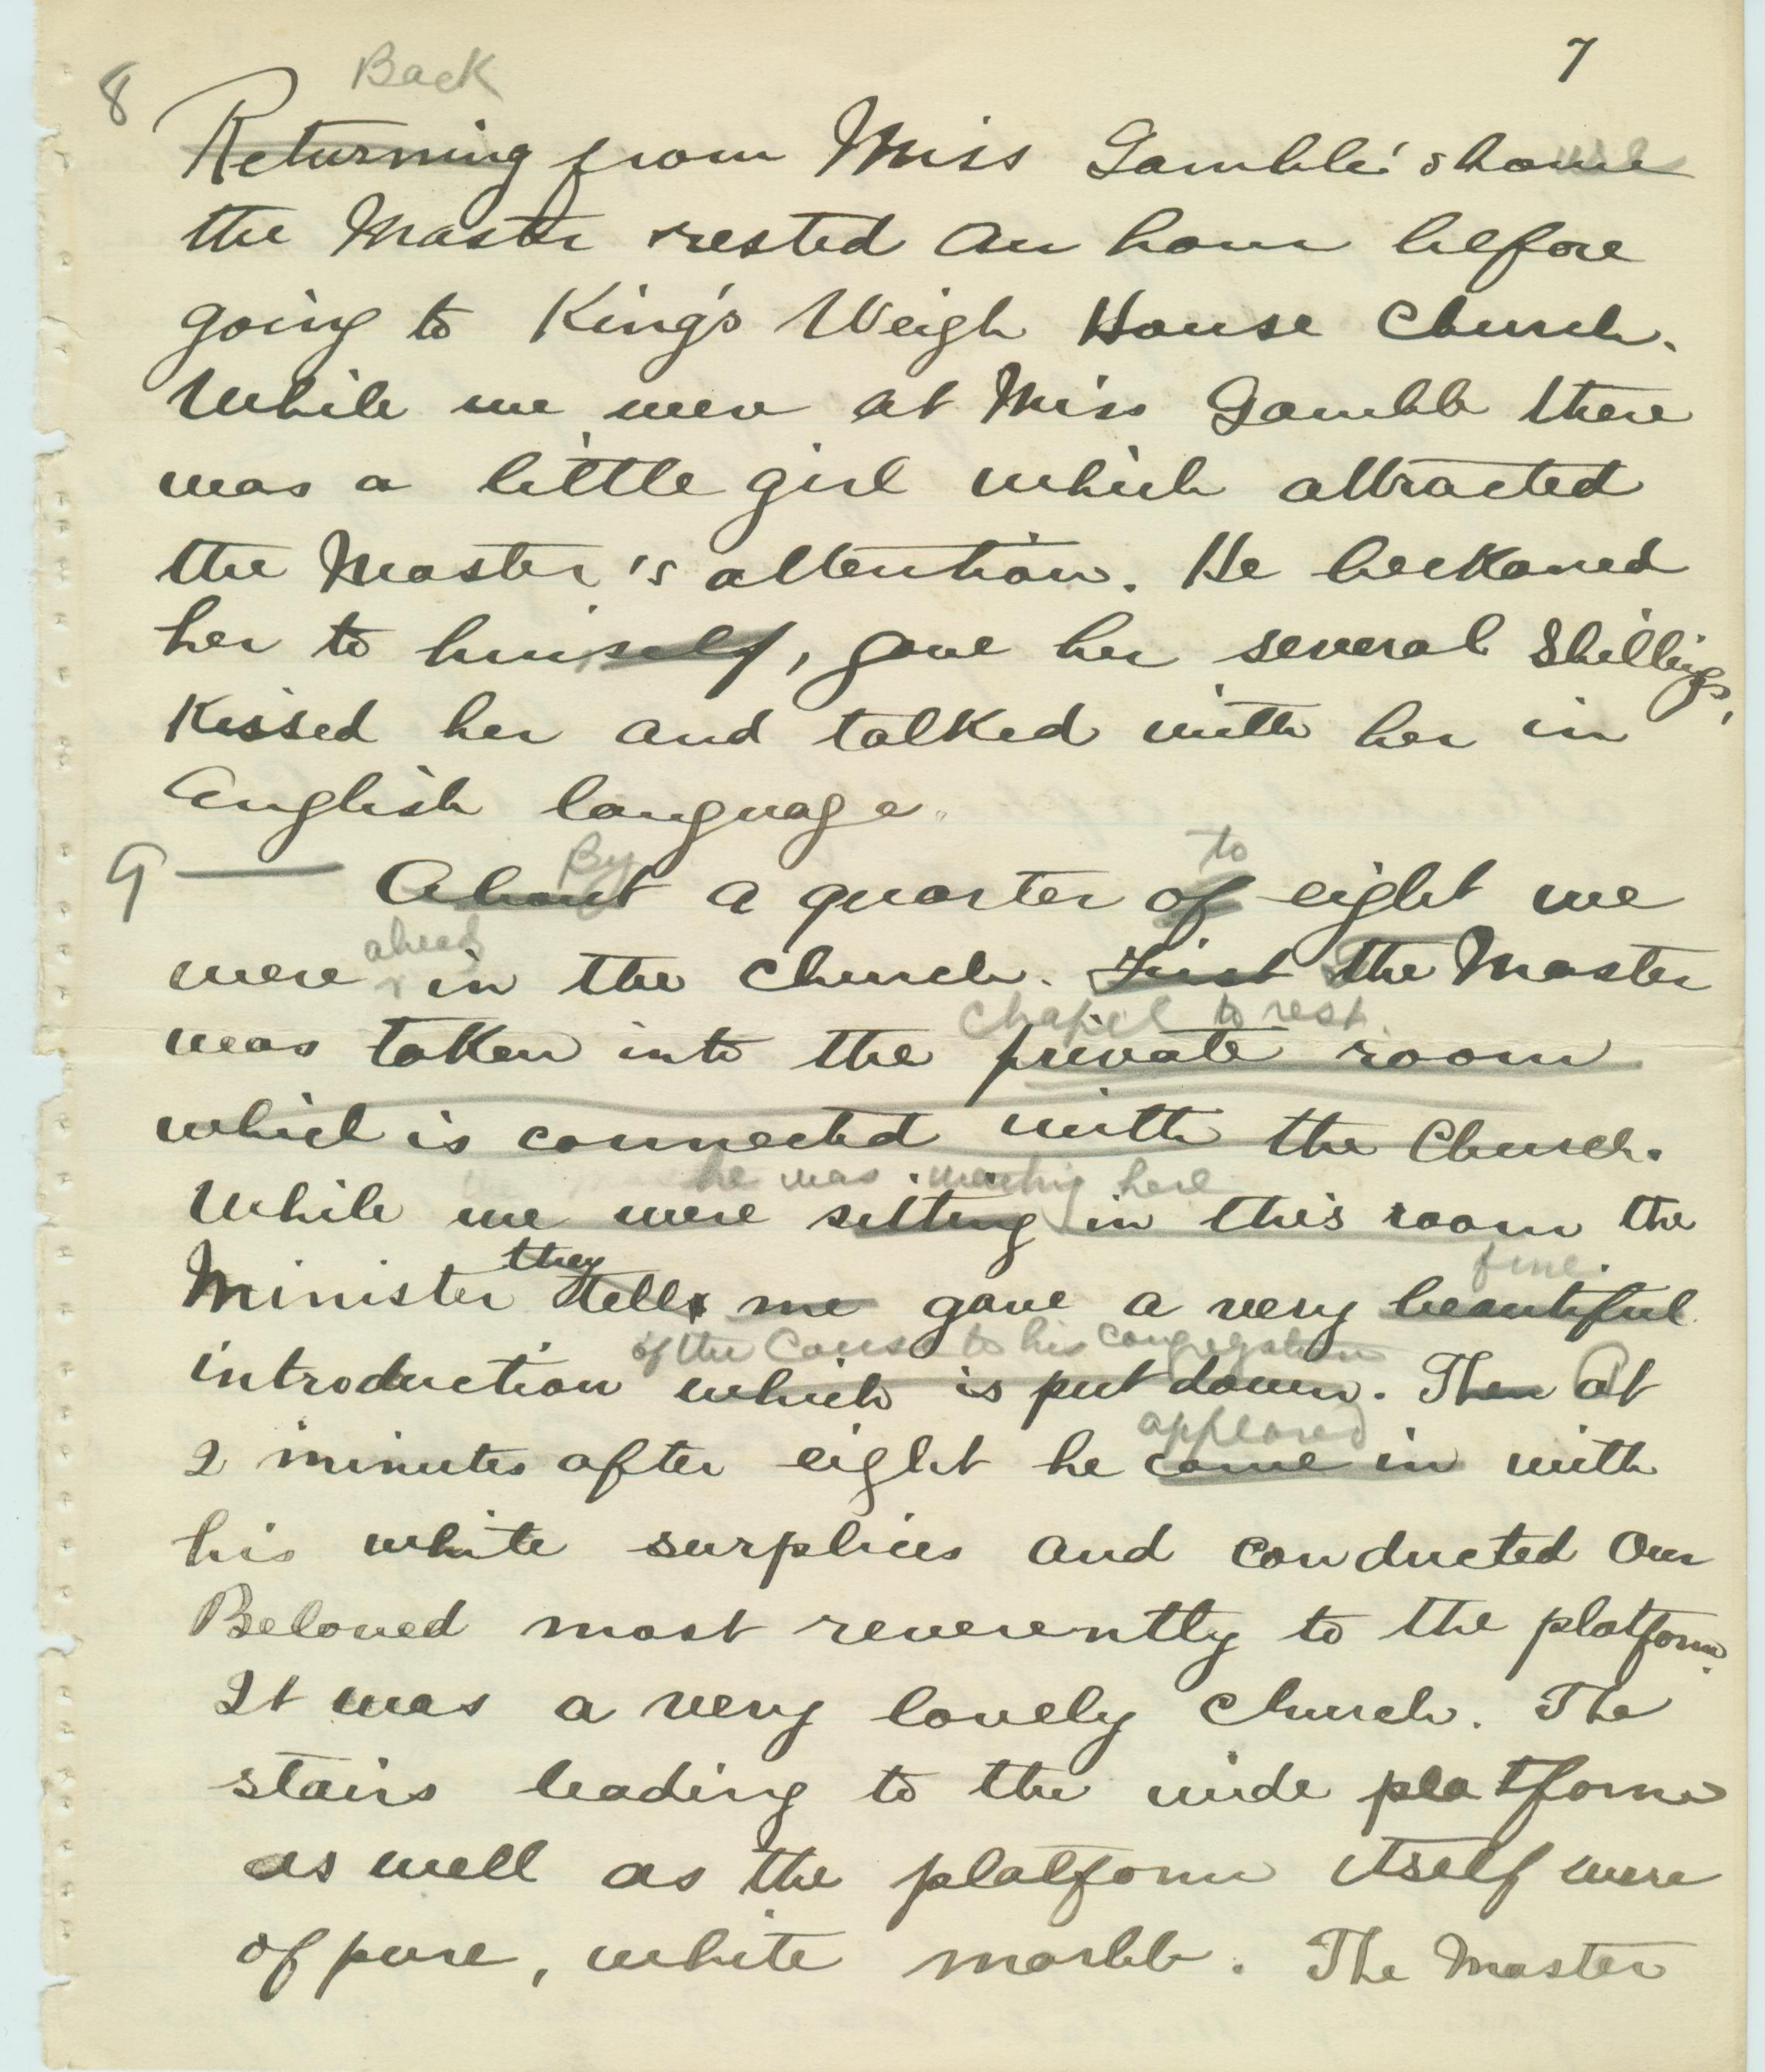 7
8 Back
Returning from Miss Gamble's home
the Master rested an hour before
going to King's Weigh House Church.
While we were at Miss Gamble there
was a little girl which attracted
the Master's attention. He beckoned
her to himself, gave her several shillings,
kissed her and talked with her in
English language.
By to
9 — About a quarter of eight we
ahead
were in the church. First the Master
chapel to rest.
was taken into the private room
which is connected with the Church.
he was waiting here
While we were sitting in this room the
they fine.
Minister tells me gave a very beautiful
of the Cause to his congregation
introduction which is put down. Then At
appeared
2 minutes after eight he came in with
his white surplices and conducted Our
Beloved most reverently to the platform.
It was a very lovely church. The
stairs leading to the wide platform
as well as the platform itself were
of pure, white marble. The Master